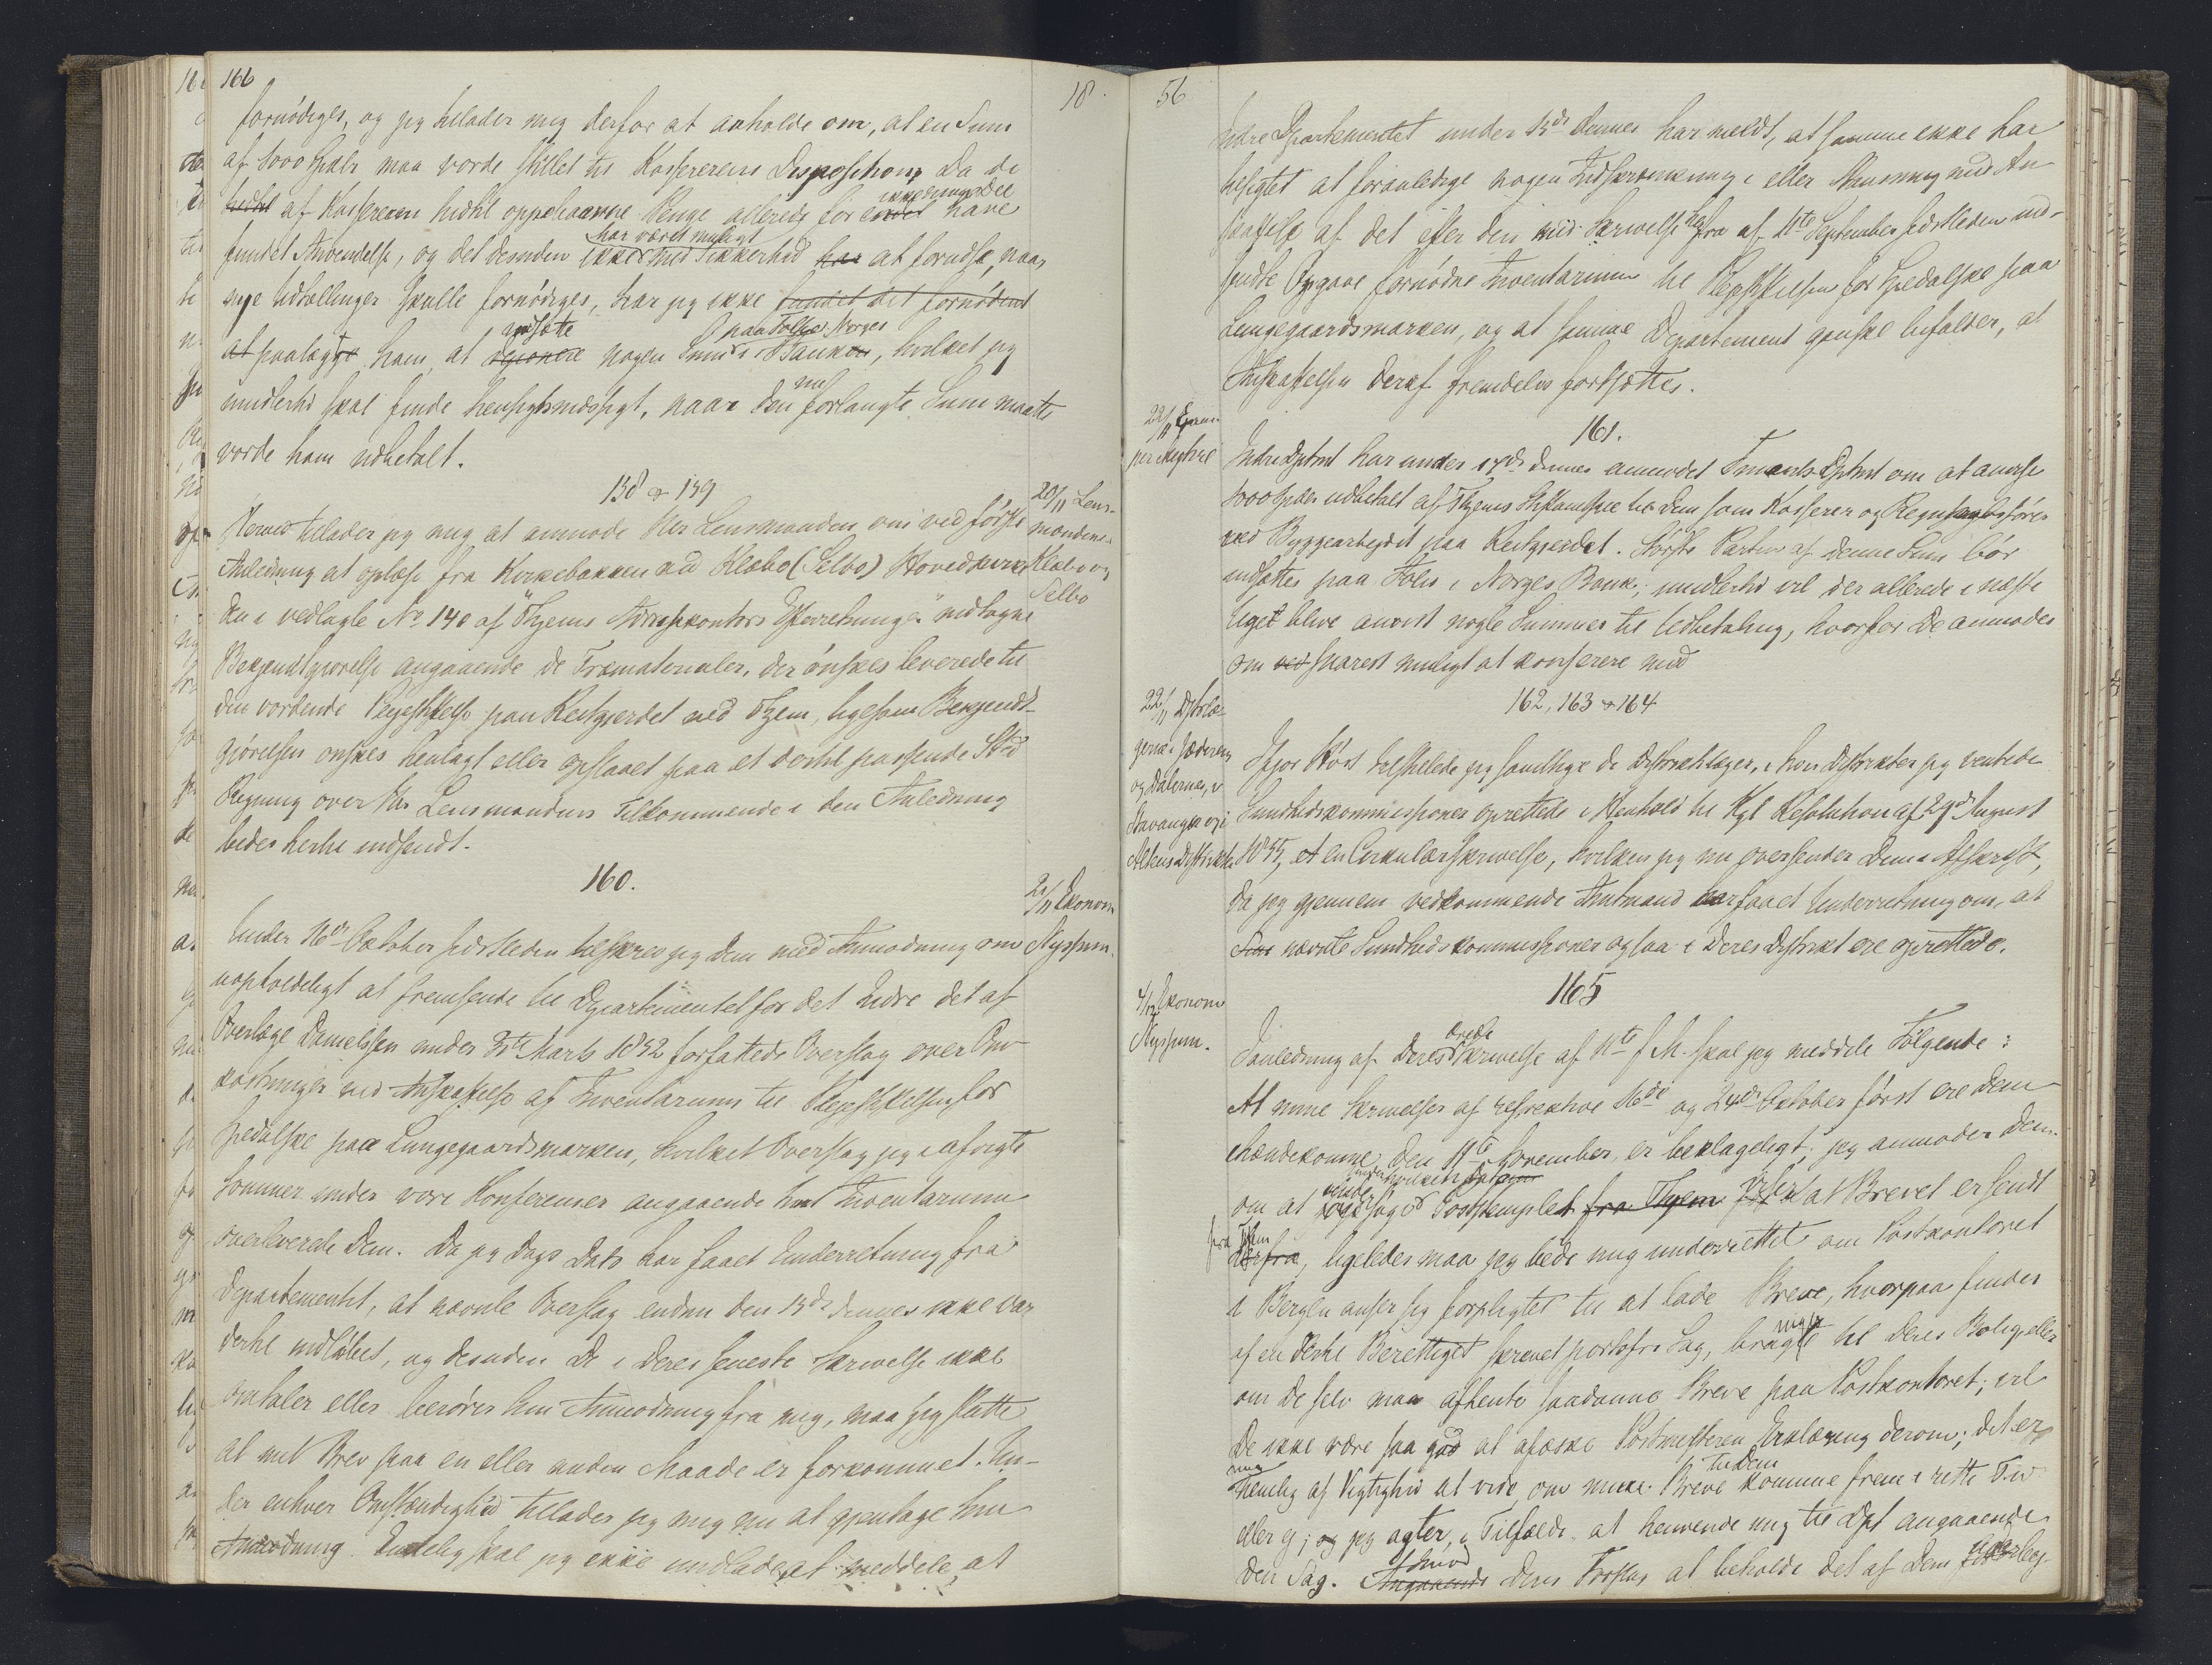 166
18
fornødiges, og jeg tillader mig derfor at anholde om, at en Sum
af 1000 Spdlr maa vorde stillet til Kassererens Disposition. Da de
hidtil af Kassereren hidtil oppebaarne Penge allerede for ikke ringe Deel have
fundet Anvendelse, og det desuden ikke har været muligt med Sikkerhed har at forudse, naar
nye Udtællinger skulle fornødiges, har jeg ikke fundet det fornødent
at paalægge ham, at indsætte deponere nogen Sum paa Folio i Norges Banken, hvilket jeg
imidlertid skal finde hensigtsmæssigt, naar den nu forlangte Sum maatte
vorde ham udbetalt.
158 & 159
20/11 Lens-
mændene i
Klæbo og
Selbo
Herved tillader jeg mig at anmode Hr Lensmanden om ved første
Anledning at oplæse fra Kirkebakken ved Klæbo (Selbo) Hovedkirke
den i vedlagte No 140 af "Thjems Adressekontors Efterretninger" indtagne
Bekjendtgjørelse angaaende de Træmaterialer, der ønskes leverede til
den vordende Pleiestiftelse paa Reitgjerdet ved Thjem, ligesom Bekjendt-
gjørelsen ønskes henlagt eller opslaaet paa et dertil passende Sted.
Regning over Hr Lensmandens Tilkommende i den Anledning
bedes hertil indsendt.
160.
21/11 Økonom
Nyssum.
Under 16de Oktober sidstleden tilskrev jeg Dem med Anmodning om
uopholdeligt at fremsende til Departementet for det Indre det af
Overlæge Danielssen under 3te Marts 1852 forfattede Overslag over Om-
kostninger ved Anskaffelse af Inventarium til Pleiestiftelsen for
Spedalske paa Lungegaardsmarken, hvilket Overslag jeg i afvigte
Sommer under vore Konferenser angaaende hint Inventarium
overleverede Dem. Da jeg Dags Dato har faaet Underretning fra
Departementet, at nævnte Overslag endnu den 15de dennes ikke var
dertil indløbet, og desuden De i Deres seneste Skrivelse ikke
omtaler eller berører hin Anmodning fra mig, maa jeg slutte
at mit Brev paa en eller anden Maade er forkommet. Un-
der enhver Omstændighed tillader jeg mig nu at gjentage hin
Anmodning. Endelig skal jeg ikke undlade, at meddele, at
56
Indre Departementet under 15de dennes har meldt, at samme ikke har
besigtet at foranledige nogen Indskrænkning i eller Standsning med An-
skaffelse af det efter den med Skrivelse herfra af 11te September sidstleden ind-
sendte Opgave fornødne Inventarium til Pleiestiftelsen for Spedalske paa
Lungegaardsmarken, og at samme Departement ganske bifalder, at
Anskaffelsen deraf fremdeles fortsættes.
161.
22/11
per
Indre Dptmt har under 17de dennes anmodet Finants Dptmt om at anvise
1000 Spdlr udbetalt af Thjems Stiftamtstue til Dem som Kasserer og Regnskabsfører
ved Byggearbeidet paa Reitgjerdet. Største Parten af denne Sum bør
indsættes paa Folio i Norges Bank; imidlertid vil der allerede i næste
Uge blive anvist nogle Summer til Udbetaling, hvorfor De anmodes
om ved snarest muligt at konferere med
162, 163 & 164
22/11 Distrlæ-
gerne i Jæderen
og Dalerne, i
Stavanger og i
Altens Distrikter
Ifjor Høst tilstillede jeg samtlige de Distriktslæger, i hvis Distrikter jeg ventede
Sundhedskommissioner oprettede i Henhold til Kgl Resolution af 29de August
1855, et en Cirkulærskrivelse, hvilken jeg nu oversender Dem i Afskrift,
da jeg gjennem vedkommende Amtmand har faaet Underretning om, at
nævnte Sundhedskommissioner ogsaa i Deres Distrikt ere oprettede.
165
4/12 Økonom
Nyssum.
I Anledning af Deres ærede Skrivelse af 11te f. M. skal jeg meddele Følgende:
At mine Skrivelser af respektive 16de og 24de Oktober først ere Dem
ihændekomne den 11te November, er beklageligt; jeg anmoder Dem
om at undersøge under hvilket Datum Poststemplet fra Thjem viser at Brevet er sendt
fra Thjem derfra, ligeledes maa jeg bede mig underrettet om Postkontoret
i Bergen anser sig forpligtet til at lade Breve, hvorpaa findes
af en dertil Berettiget skrevet portofri Sag, bringe til Deres Bolig eller
om De selv maa afhente saadanne Breve paa Postkontoret; vil
De ikke være saa god at afæske Postmesteren Erklæring derom; det er
mig nemlig af Vigtighed at vide, om mine Breve til Dem komme frem i rette Tid
eller ej; og jeg agter, i Tilfælde, at henvende mig til Dpt angaaende
den Sag. Angaaende Imod Deres Forslag at beholde det af Dem